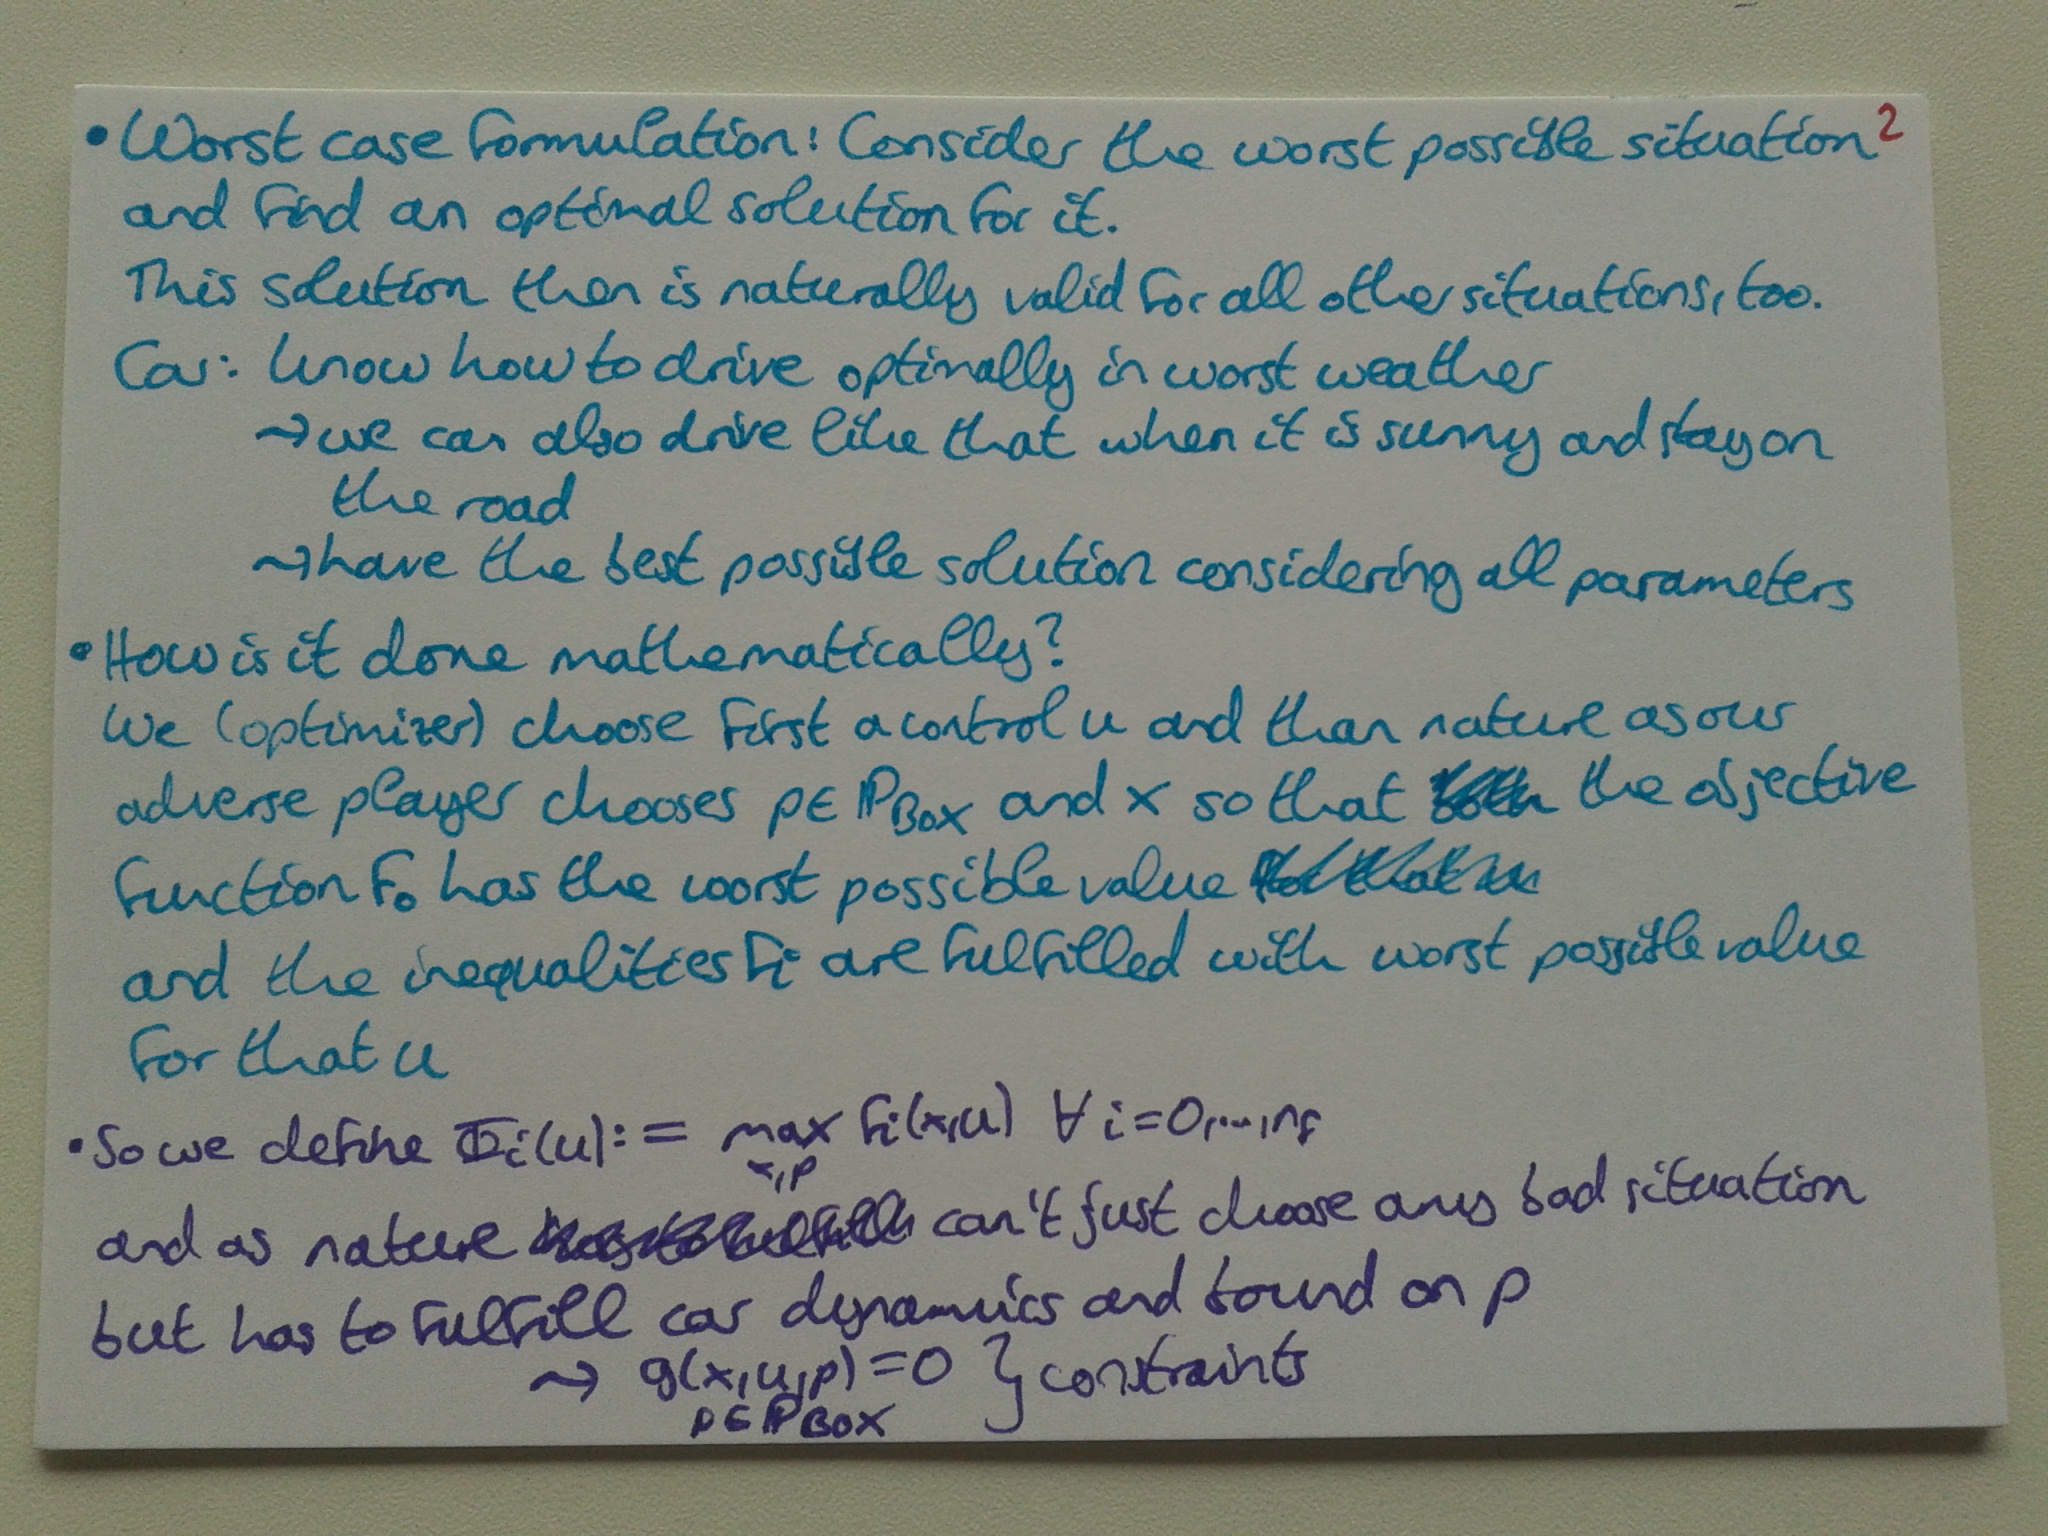 • Worst case formulation: Consider the worst possible situation 2
and find an optimal solution for it.
This solution then is naturally valid for all other situations, too.
Car: know how to drive optimally in worst weather
⇝ we can also drive like that when it is sunny and stay on
the road
⇝ have the best possible solution considering all parameters
• How is it done mathematically?
We (optimizer) choose first a control u and than nature as our
adverse player chooses p∈ℙ_Box and x so that the objective
function f₀ has the worst possible value
and the inequalities fᵢ are fulfilled with worst possible value
for that u
• So we define Φᵢ(u) := max fᵢ(x,u) ∀ i=0,...,n_f
x,p
and as nature can't just choose any bad situation
but has to fulfill car dynamics and bound on p
⇝ g(x,u,p)=0 } constraints
p∈ℙ_Box